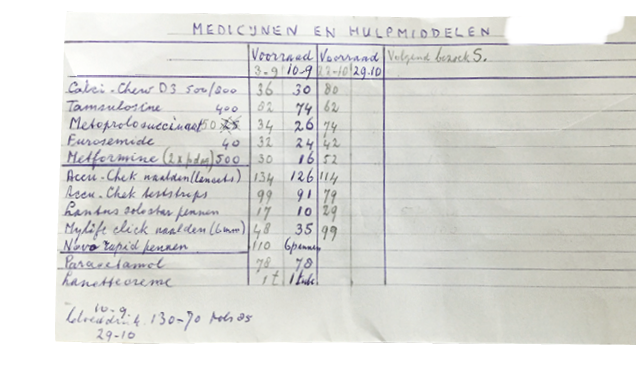 MEDICIJNEN EN HULPMIDDELEN
Voorraad Voorraad Volgend bezoek S.
3-9 10-9 22-10 29.10
Calci-Chew D3 500/800 36 30 80
Tamsulosine 400 82 74 62
Metoprololsuccinaat 50 34 26 74
Furosemide 40 32 24 42
Metformine (2x p.dag) 500 30 16 52
Accu-Chek naalden (lancets) 134 126 114
Accu-Chek teststrips 99 91 79
Lantus solostar pennen 17 10 29
Mylife click naalden (6mm) 48 35 99
Novo rapid pennen 110 6 pennen
Paracetamol 78 78
Lanettecreme 1 t 1 tube
10-9
bloeddruk 130-70
29-10